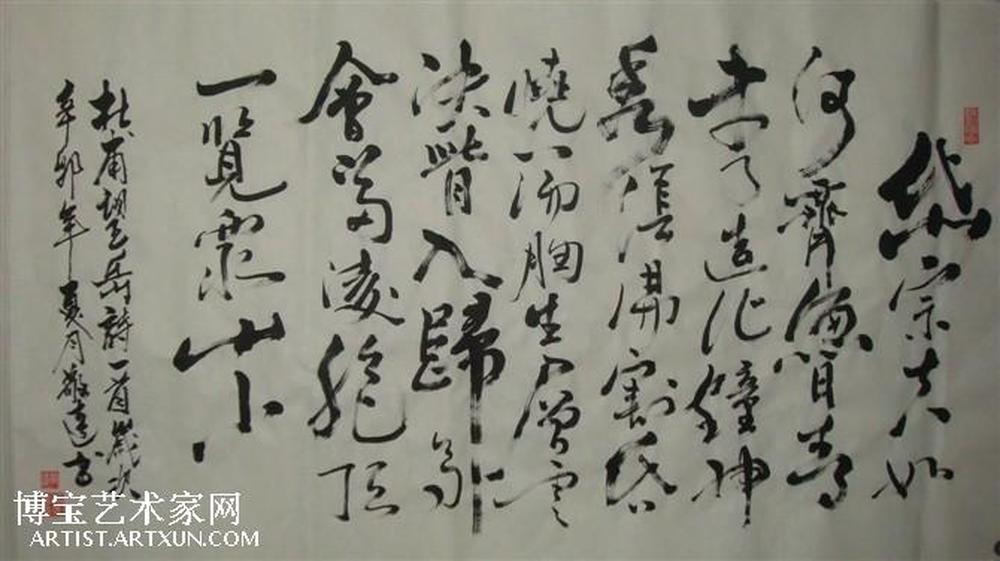 岱宗夫如
何齊魯青
未了造化鍾神
秀陰陽割昏
曉蕩胸生層雲
決眥入歸鳥
會當凌絕頂
一覽眾山小
杜甫望岳詩一首歲次
辛卯年夏月書
博宝艺术家网
ARTIST.ARTXUN.COM